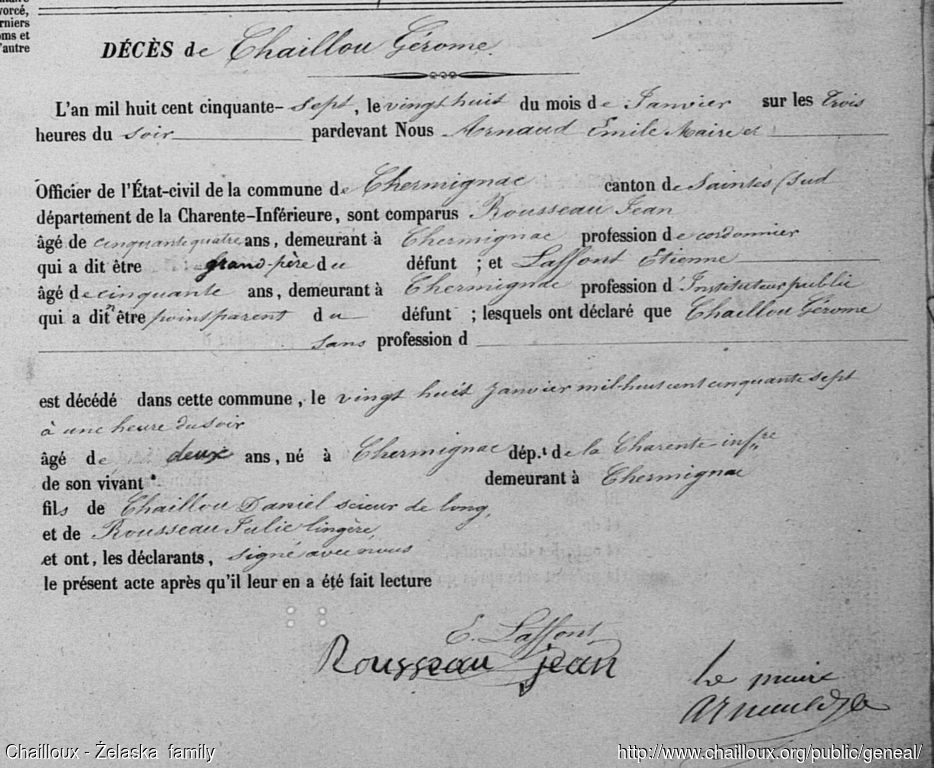 vorcé,
rniers
ms et
l'autre
DÉCÈS de Chaillou Gérome.
L'an mil huit cent cinquante-sept, le vingt huit du mois de Janvier sur les trois
heures du soir pardevant Nous Arnaud Emile Maire et
Officier de l'État-civil de la commune de Chermignac canton de Saintes (Sud
département de la Charente-Inférieure, sont comparus Rousseau Jean
âgé de cinquante quatre ans, demeurant à Chermignac profession de cordonnier
qui a dit être grand-père du défunt ; et Laffont Etienne
âgé de cinquante ans, demeurant à Chermignac profession d Instituteur public
qui a dit n être point parent du défunt ; lesquels ont déclaré que Chaillou Gérome
sans profession d
est décédé dans cette commune, le vingt huit janvier mil-huit cent cinquante sept
à une heure du soir
âgé de deux ans, né à Chermignac dép.t de la Charente-infre
de son vivant demeurant à Chermignac
fils de Chaillou Daniel scieur de long,
et de Rousseau Julie lingère,
et ont, les déclarants, signé avec nous
le présent acte après qu'il leur en a été fait lecture
E. Laffont
Rousseau jean
le maire
Chailloux - Želaska family
http://www.chailloux.org/public/geneal/